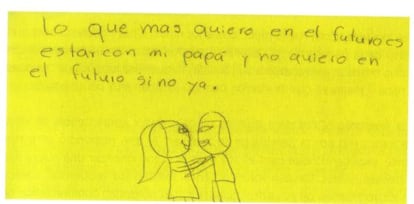 Lo que mas quiero en el futuro es
estar con mi papá y no quiero en
el futuro sino ya.